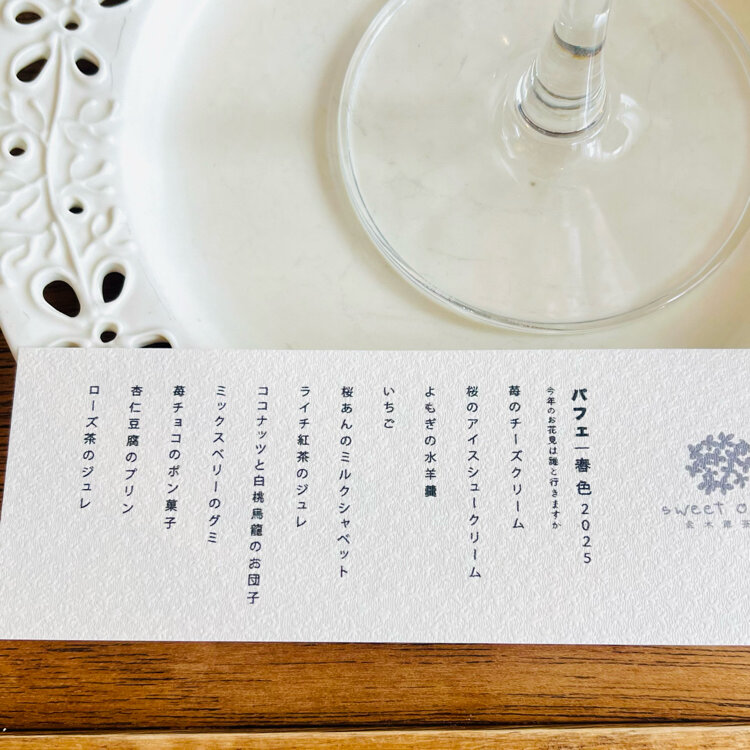 パフェ｜春色2025
今年のお花見は誰と行きますか
苺のチーズクリーム
桜のアイスシュークリーム
よもぎの水羊羹
いちご
桜あんのミルクシャーベット
ライチ紅茶のジュレ
ココナッツと白桃烏龍のお団子
ミックスベリーのグミ
苺チョコのポン菓子
杏仁豆腐のプリン
ローズ茶のジュレ
sweet o